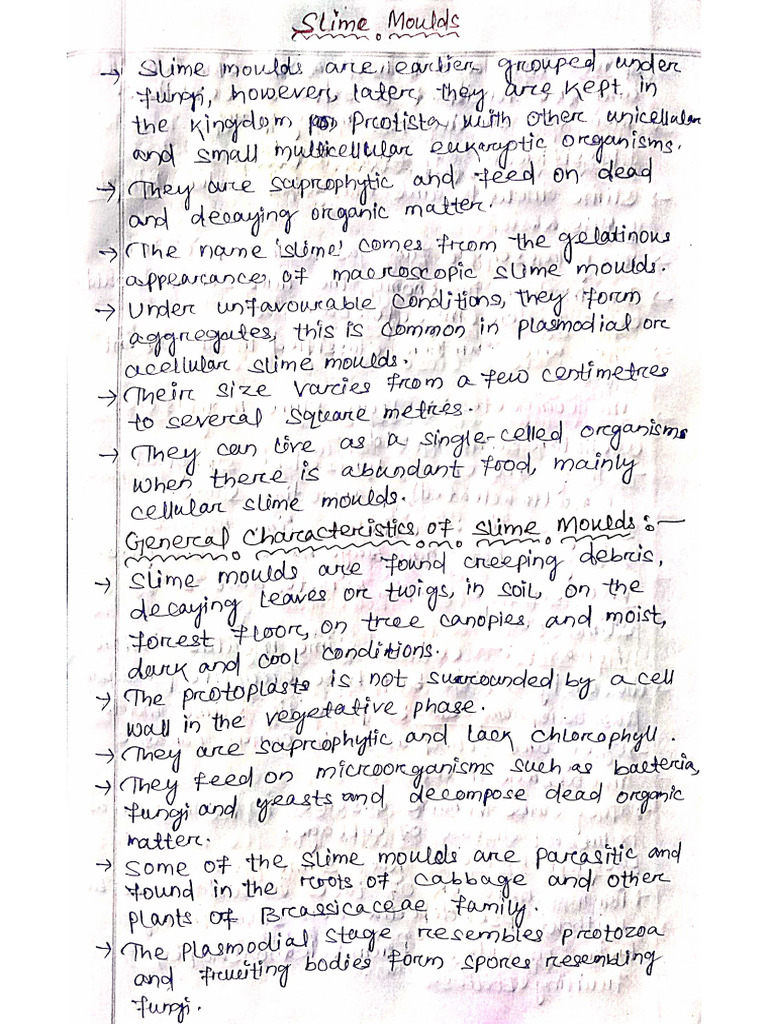 Slime Moulds
→ Slime moulds are earlier grouped under
fungi, however, later, they are kept in
the kingdom Protista with other unicellular
and small multicellular eukaryotic organisms.
→ They are saprophytic and feed on dead
and decaying organic matter.
→ The name 'slime' comes from the gelatinous
appearance, of macroscopic slime moulds.
→ Under unfavourable conditions, they form
aggregates, this is common in plasmodial or
acellular slime moulds.
→ Their size varies from a few centimetres
to several square metres.
→ They can live as a single-celled organisms
when there is abundant food, mainly
cellular slime moulds.
General Characteristics of Slime Moulds:-
→ Slime moulds are found creeping debris,
decaying leaves or twigs, in soil, on the
forest floor, on tree canopies, and moist,
dark and cool conditions.
→ The protoplasts is not surrounded by a cell
wall in the vegetative phase.
→ They are saprophytic and lack chlorophyll.
→ They feed on microorganisms such as bacteria,
fungi and yeasts and decompose dead organic
matter.
→ Some of the slime moulds are parasitic and
found in the roots of cabbage and other
plants of Brassicaceae family.
→ The plasmodial stage resembles protozoa
and fruiting bodies form spores resembling
fungi.